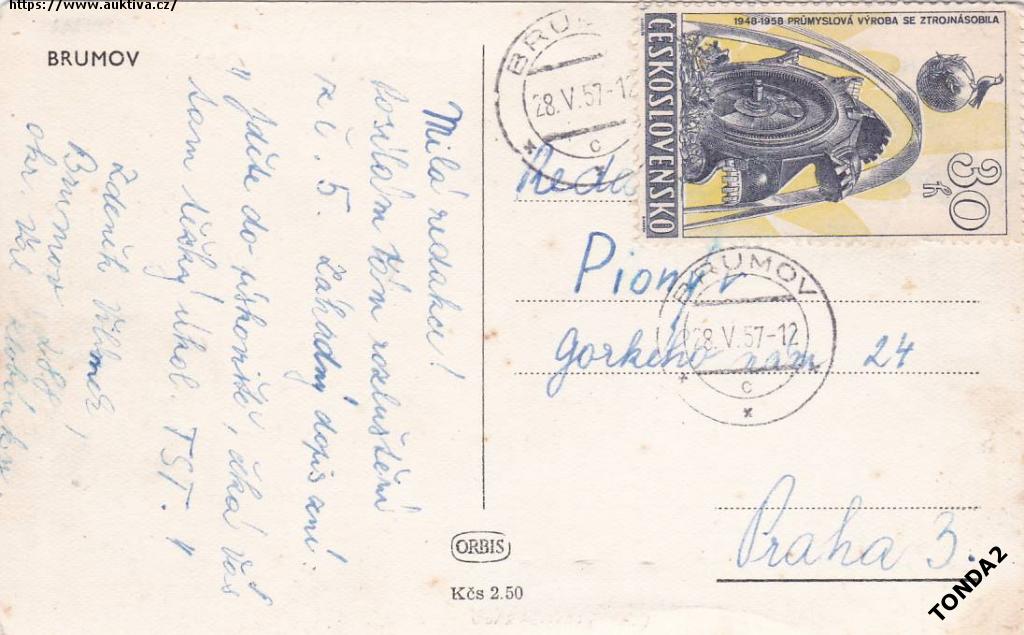 https://www.auktiva.cz/
BRUMOV
Milá redakce!
Posílám Vám rozluštění
z č. 5. Záhadný dopis zní:
"Jděte do pískoviště, čká vás
tam těžký úkol. TST."
Zdeněk
Brumov 288
okr. Val. Klobúky
BRUMOV
28.V.57-12
C
1948-1958 PRŮMYSLOVÁ VÝROBA SE ZTROJNÁSOBILA
ČESKOSLOVENSKO
30 h
Pionýr
BRUMOV
28.V.57-12
C
Gorkého nám 24
Praha 3.
ORBIS
Kčs 2.50
TONDA2